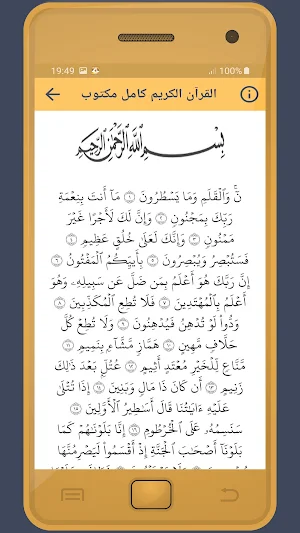 19:49 100%
القرآن الكريم كامل مكتوب
بِسْمِ ٱللَّهِ ٱلرَّحْمَٰنِ ٱلرَّحِيمِ
نٓ ۚ وَٱلْقَلَمِ وَمَا يَسْطُرُونَ ﴿١﴾ مَآ أَنتَ بِنِعْمَةِ
رَبِّكَ بِمَجْنُونٍ ﴿٢﴾ وَإِنَّ لَكَ لَأَجْرًا غَيْرَ
مَمْنُونٍ ﴿٣﴾ وَإِنَّكَ لَعَلَىٰ خُلُقٍ عَظِيمٍ ﴿٤﴾
فَسَتُبْصِرُ وَيُبْصِرُونَ ﴿٥﴾ بِأَييِّكُمُ ٱلْمَفْتُونُ ﴿٦﴾
إِنَّ رَبَّكَ هُوَ أَعْلَمُ بِمَن ضَلَّ عَن سَبِيلِهِۦ وَهُوَ
أَعْلَمُ بِٱلْمُهْتَدِينَ ﴿٧﴾ فَلَا تُطِعِ ٱلْمُكَذِّبِينَ ﴿٨﴾
وَدُّوا۟ لَوْ تُدْهِنُ فَيُدْهِنُونَ ﴿٩﴾ وَلَا تُطِعْ كُلَّ
حَلَّافٍ مَّهِينٍ ﴿١٠﴾ هَمَّازٍ مَّشَّآءٍ بِنَمِيمٍ ﴿١١﴾
مَّنَّاعٍ لِّلْخَيْرِ مُعْتَدٍ أَثِيمٍ ﴿١٢﴾ عُتُلٍّ بَعْدَ ذَٰلِكَ
زَنِيمٍ ﴿١٣﴾ أَن كَانَ ذَا مَالٍ وَبَنِينَ ﴿١٤﴾ إِذَا تُتْلَىٰ
عَلَيْهِ ءَايَٰتُنَا قَالَ أَسَٰطِيرُ ٱلْأَوَّلِينَ ﴿١٥﴾
سَنَسِمُهُۥ عَلَى ٱلْخُرْطُومِ ﴿١٦﴾ إِنَّا بَلَوْنَٰهُمْ كَمَا
بَلَوْنَآ أَصْحَٰبَ ٱلْجَنَّةِ إِذْ أَقْسَمُوا۟ لَيَصْرِمُنَّهَا